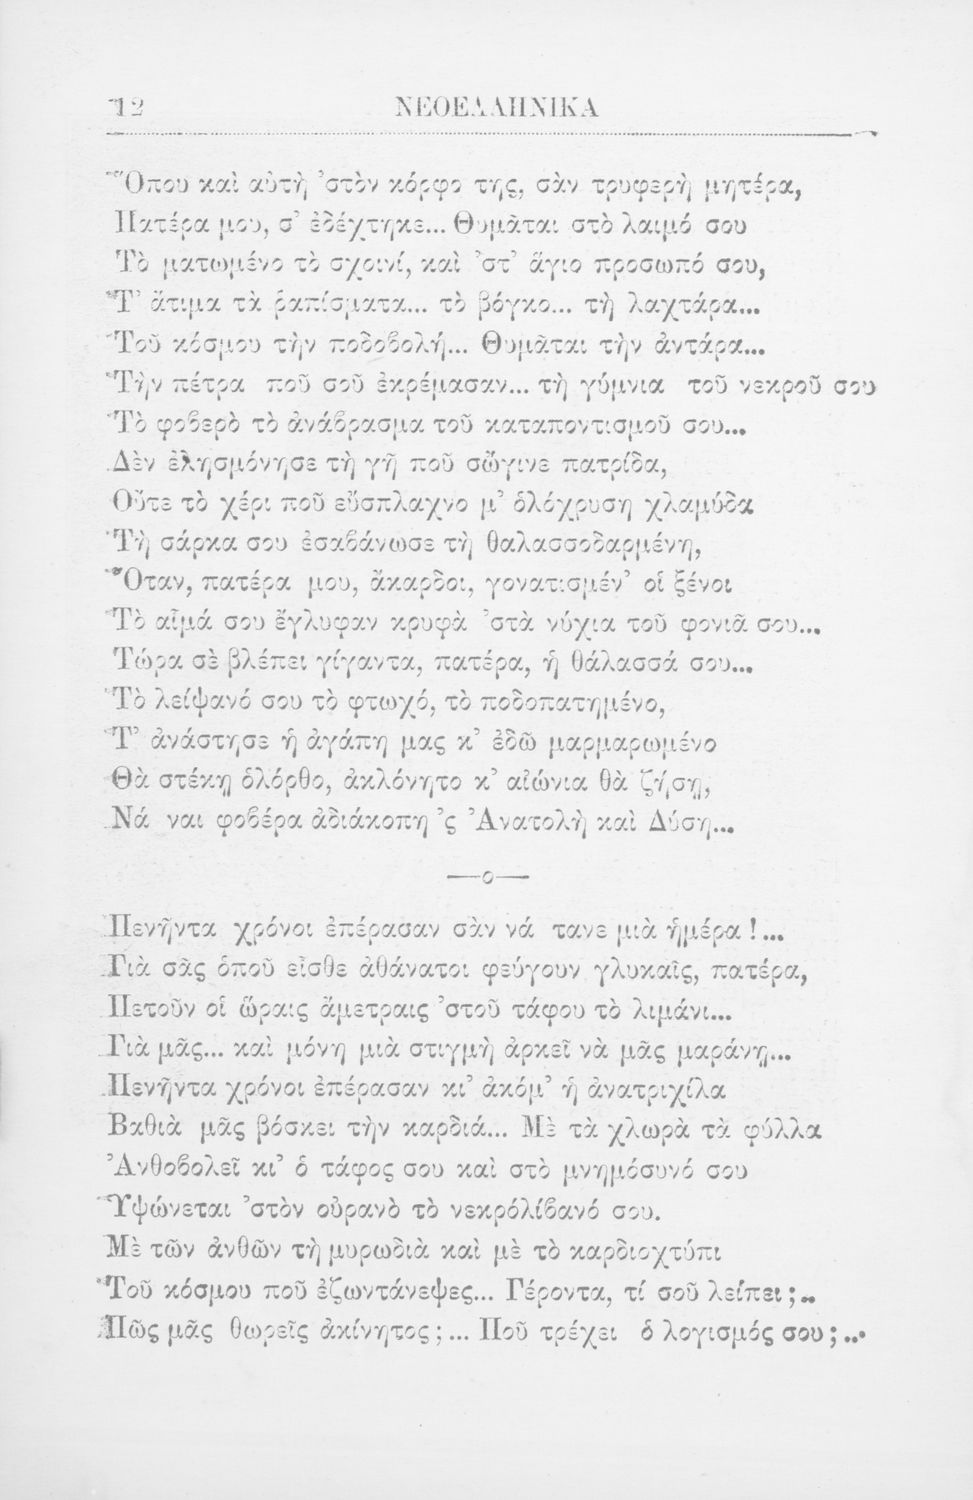 12 ΝΕΟΕΛΛΗΝΙΚΑ
Ὅπου καὶ αὐτὴ ’στὸν κόρφο της, σὰν τρυφερὴ μητέρα,
Πατέρα μου, σ’ ἐδέχτηκε... Θυμᾶται στὸ λαιμό σου
Τὸ ματωμένο τὸ σχοινί, καὶ ’στ’ ἅγιο προσωπό σου,
Τ’ ἄτιμα τὰ ῥαπίσματα... τὸ βόγκο... τὴ λαχτάρα...
Τοῦ κόσμου τὴν ποδοβολή... Θυμᾶται τὴν ἀντάρα...
Τὴν πέτρα ποῦ σοῦ ἐκρέμασαν... τὴ γύμνια τοῦ νεκροῦ σου
Τὸ φοβερὸ τὸ ἀνάβρασμα τοῦ καταποντισμοῦ σου...
Δὲν ἐλησμόνησε τὴ γῆ ποῦ σὤγινε πατρίδα,
Οὔτε τὸ χέρι ποῦ εὔσπλαχνο μ’ ὁλόχρυση χλαμύδα
Τὴ σάρκα σου ἐσαβάνωσε τὴ θαλασσοδαρμένη,
Ὅταν, πατέρα μου, ἄκαρδοι, γονατισμέν’ οἱ ξένοι
Τὸ αἷμά σου ἔγλυφαν κρυφὰ ’στὰ νύχια τοῦ φονιᾶ σου...
Τώρα σὲ βλέπει γίγαντα, πατέρα, ἡ θάλασσά σου...
Τὸ λείψανό σου τὸ φτωχό, τὸ ποδοπατημένο,
Τ’ ἀνάστησε ἡ ἀγάπη μας κ’ ἐδῶ μαρμαρωμένο
Θὰ στέκῃ ὁλόρθο, ἀκλόνητο κ’ αἰώνια θὰ ζήσῃ,
Νά ναι φοβέρα ἀδιάκοπη ’ς Ἀνατολὴ καὶ Δύση...
—ο—
Πενῆντα χρόνοι ἐπέρασαν σὰν νά τανε μιὰ ἡμέρα!...
Γιὰ σᾶς ὁποῦ εἶσθε ἀθάνατοι φεύγουν γλυκαῖς, πατέρα,
Πετοῦν οἱ ὥραις ἄμετραις ’στοῦ τάφου τὸ λιμάνι...
Γιὰ μᾶς... καὶ μόνη μιὰ στιγμὴ ἀρκεῖ νὰ μᾶς μαράνῃ...
Πενῆντα χρόνοι ἐπέρασαν κι’ ἀκόμ’ ἡ ἀνατριχίλα
Βαθιὰ μᾶς βόσκει τὴν καρδιά... Μὲ τὰ χλωρὰ τὰ φύλλα
Ἀνθοβολεῖ κι’ ὁ τάφος σου καὶ στὸ μνημόσυνό σου
Ὑψώνεται ’στὸν οὐρανὸ τὸ νεκρολίβανό σου.
Μὲ τῶν ἀνθῶν τὴ μυρωδιὰ καὶ μὲ τὸ καρδιοχτύπι
Τοῦ κόσμου ποῦ ἐζωντάνεψες... Γέροντα, τί σοῦ λείπει;..
Πῶς μᾶς θωρεῖς ἀκίνητος;... Ποῦ τρέχει ὁ λογισμός σου;...